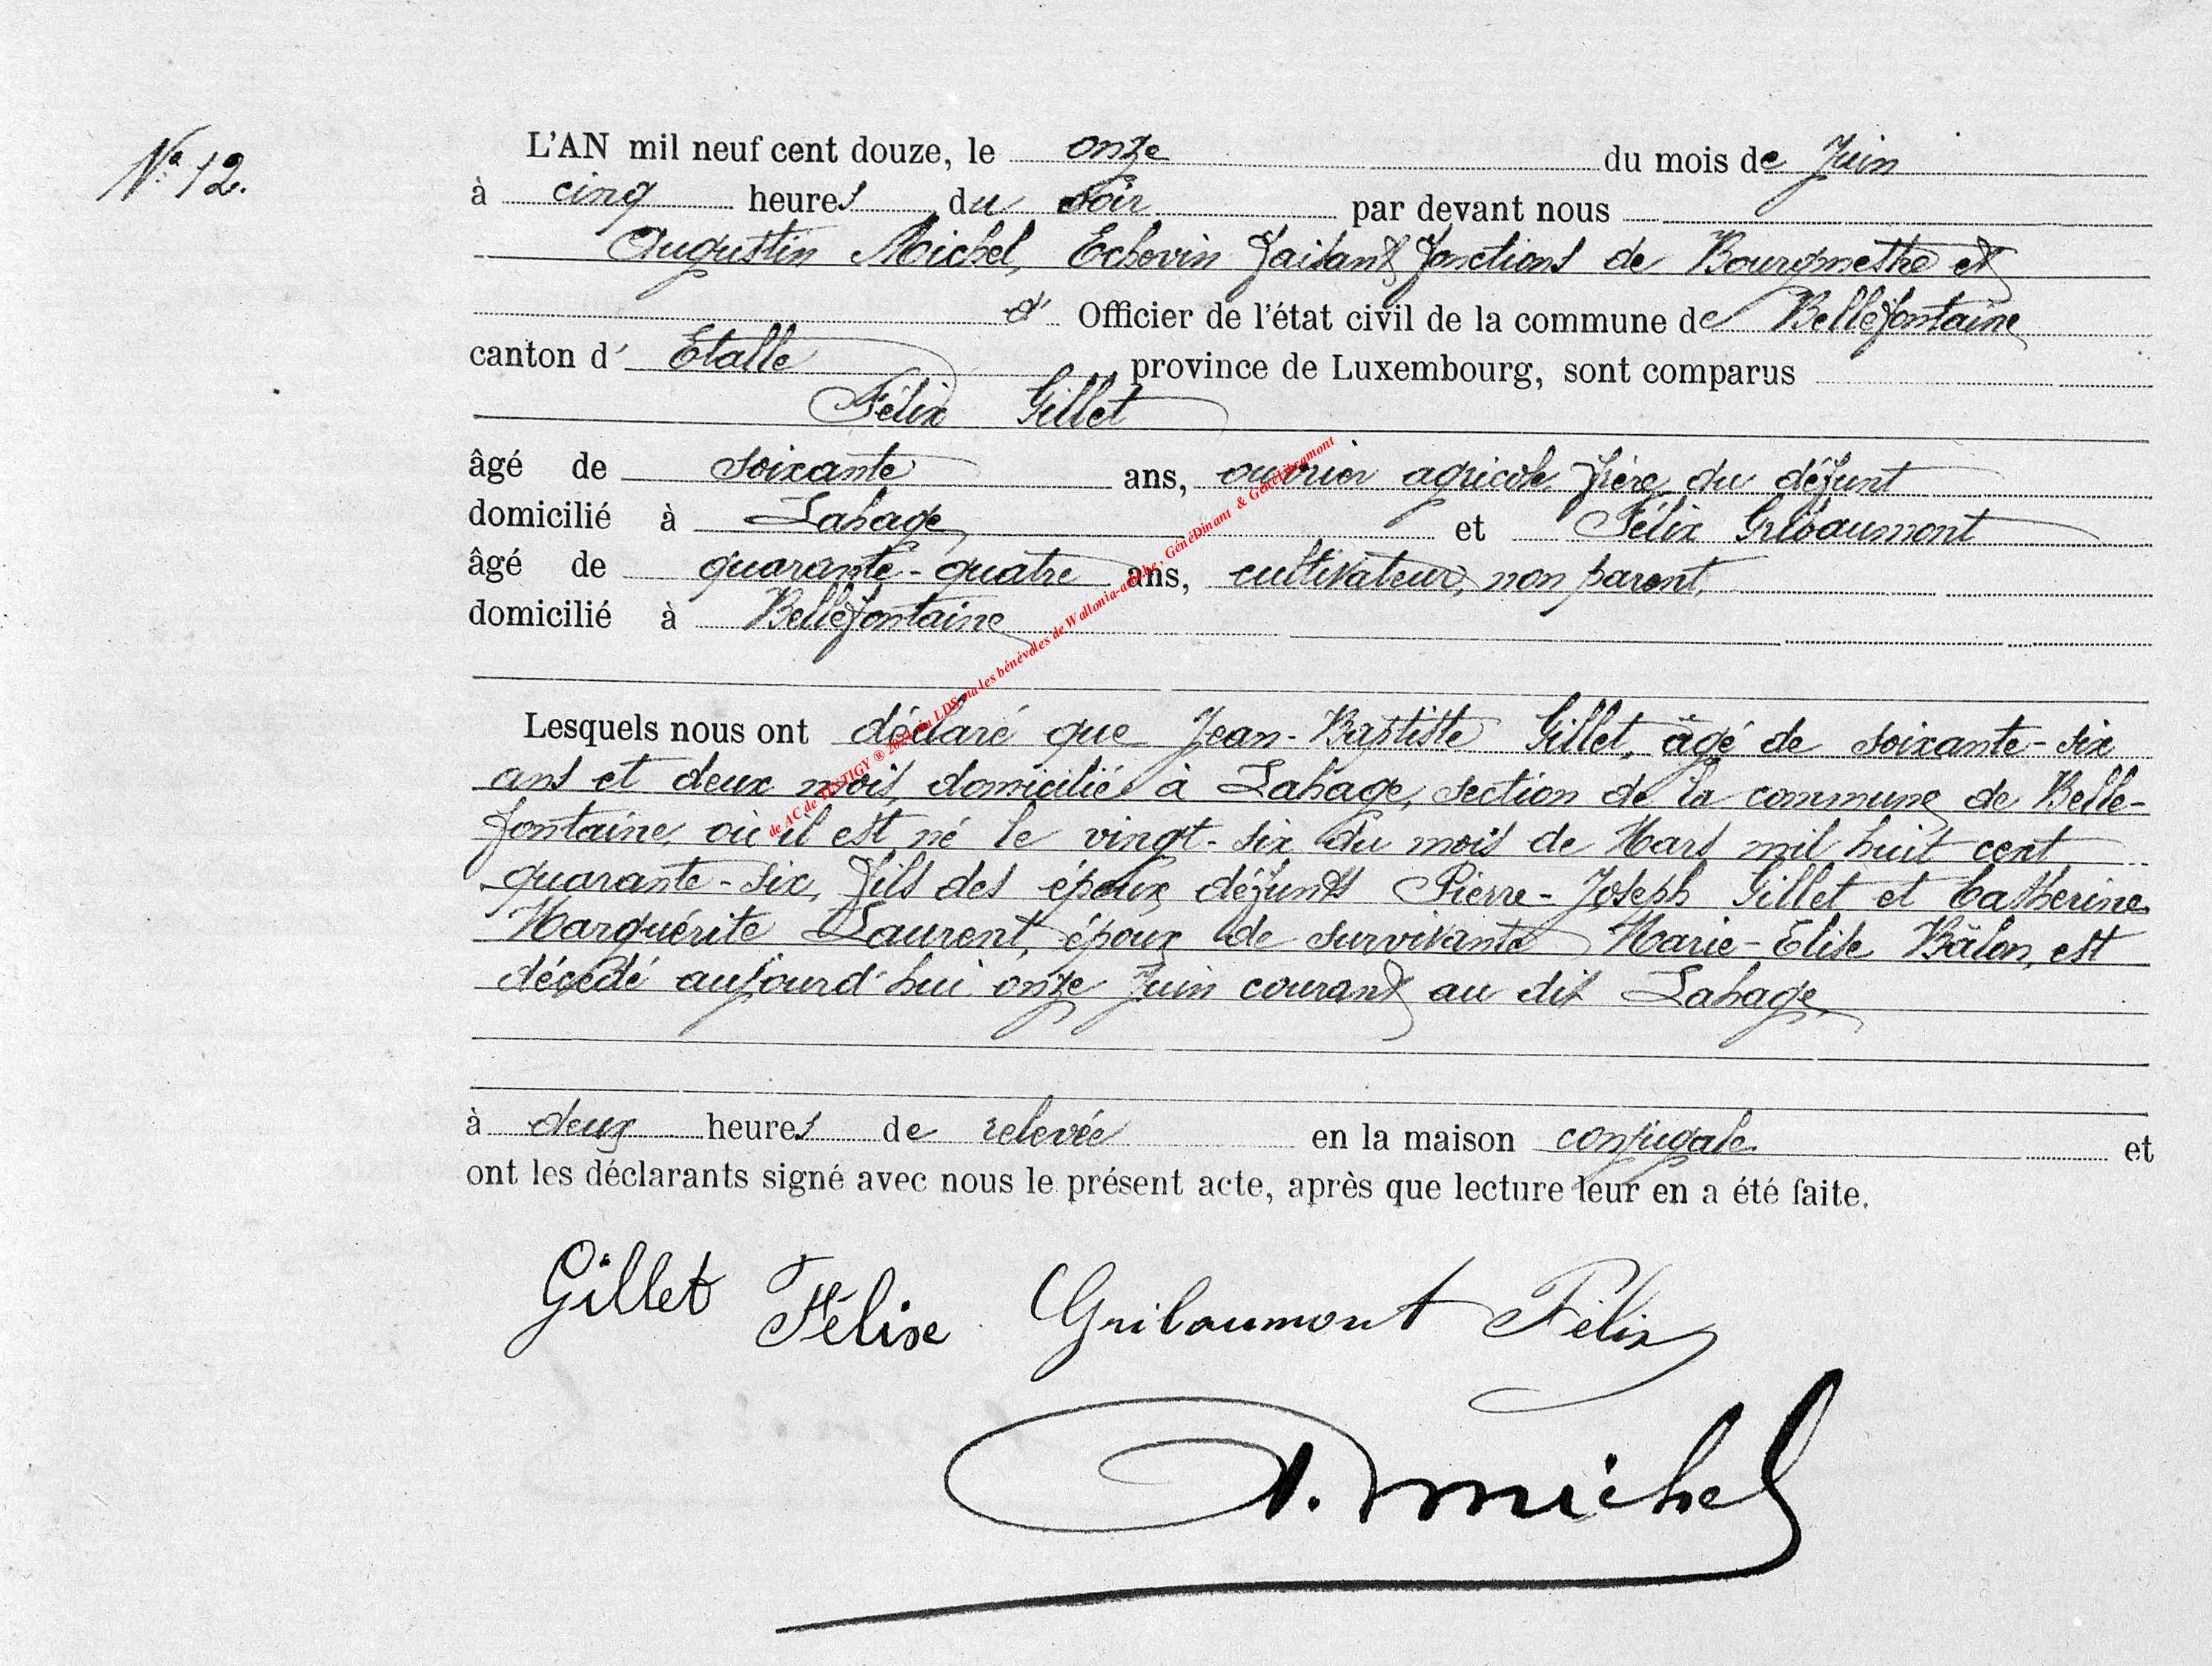 Nº 12.
L'AN mil neuf cent douze, le onze du mois de Juin
à cinq heures du soir par devant nous
Augustin Michel, Echevin faisant fonctions de Bourgmestre et
d' Officier de l'état civil de la commune de Bellefontaine
canton d' Etalle province de Luxembourg, sont comparus
Félix Gillet
âgé de soixante ans, ouvrier agricole frère du défunt
domicilié à Lahage et Félix Gribaumont
âgé de quarante-quatre ans, cultivateur, non parent,
domicilié à Bellefontaine
Lesquels nous ont déclaré que Jean-Baptiste Gillet, âgé de soixante-six
ans et deux mois, domicilié à Lahage, section de la commune de Belle-
fontaine, où il est né le vingt-six du mois de Mars mil huit cent
quarante-six, fils des époux défunts Pierre-Joseph Gillet et Catherine
Marguérite Laurent, époux de survivante Marie-Elise Bâlon, est
décédé aujourd'hui onze Juin courant au dit Lahage
à deux heures de relevée en la maison conjugale et
ont les déclarants signé avec nous le présent acte, après que lecture leur en a été faite.
Gillet Félixe Gribaumont Félix
A. Michel
de AC de TINTIGY ® 2024 via LDS via les bénévoles de Wallonia-asbl.be, GénéDinant & GénéLibramont